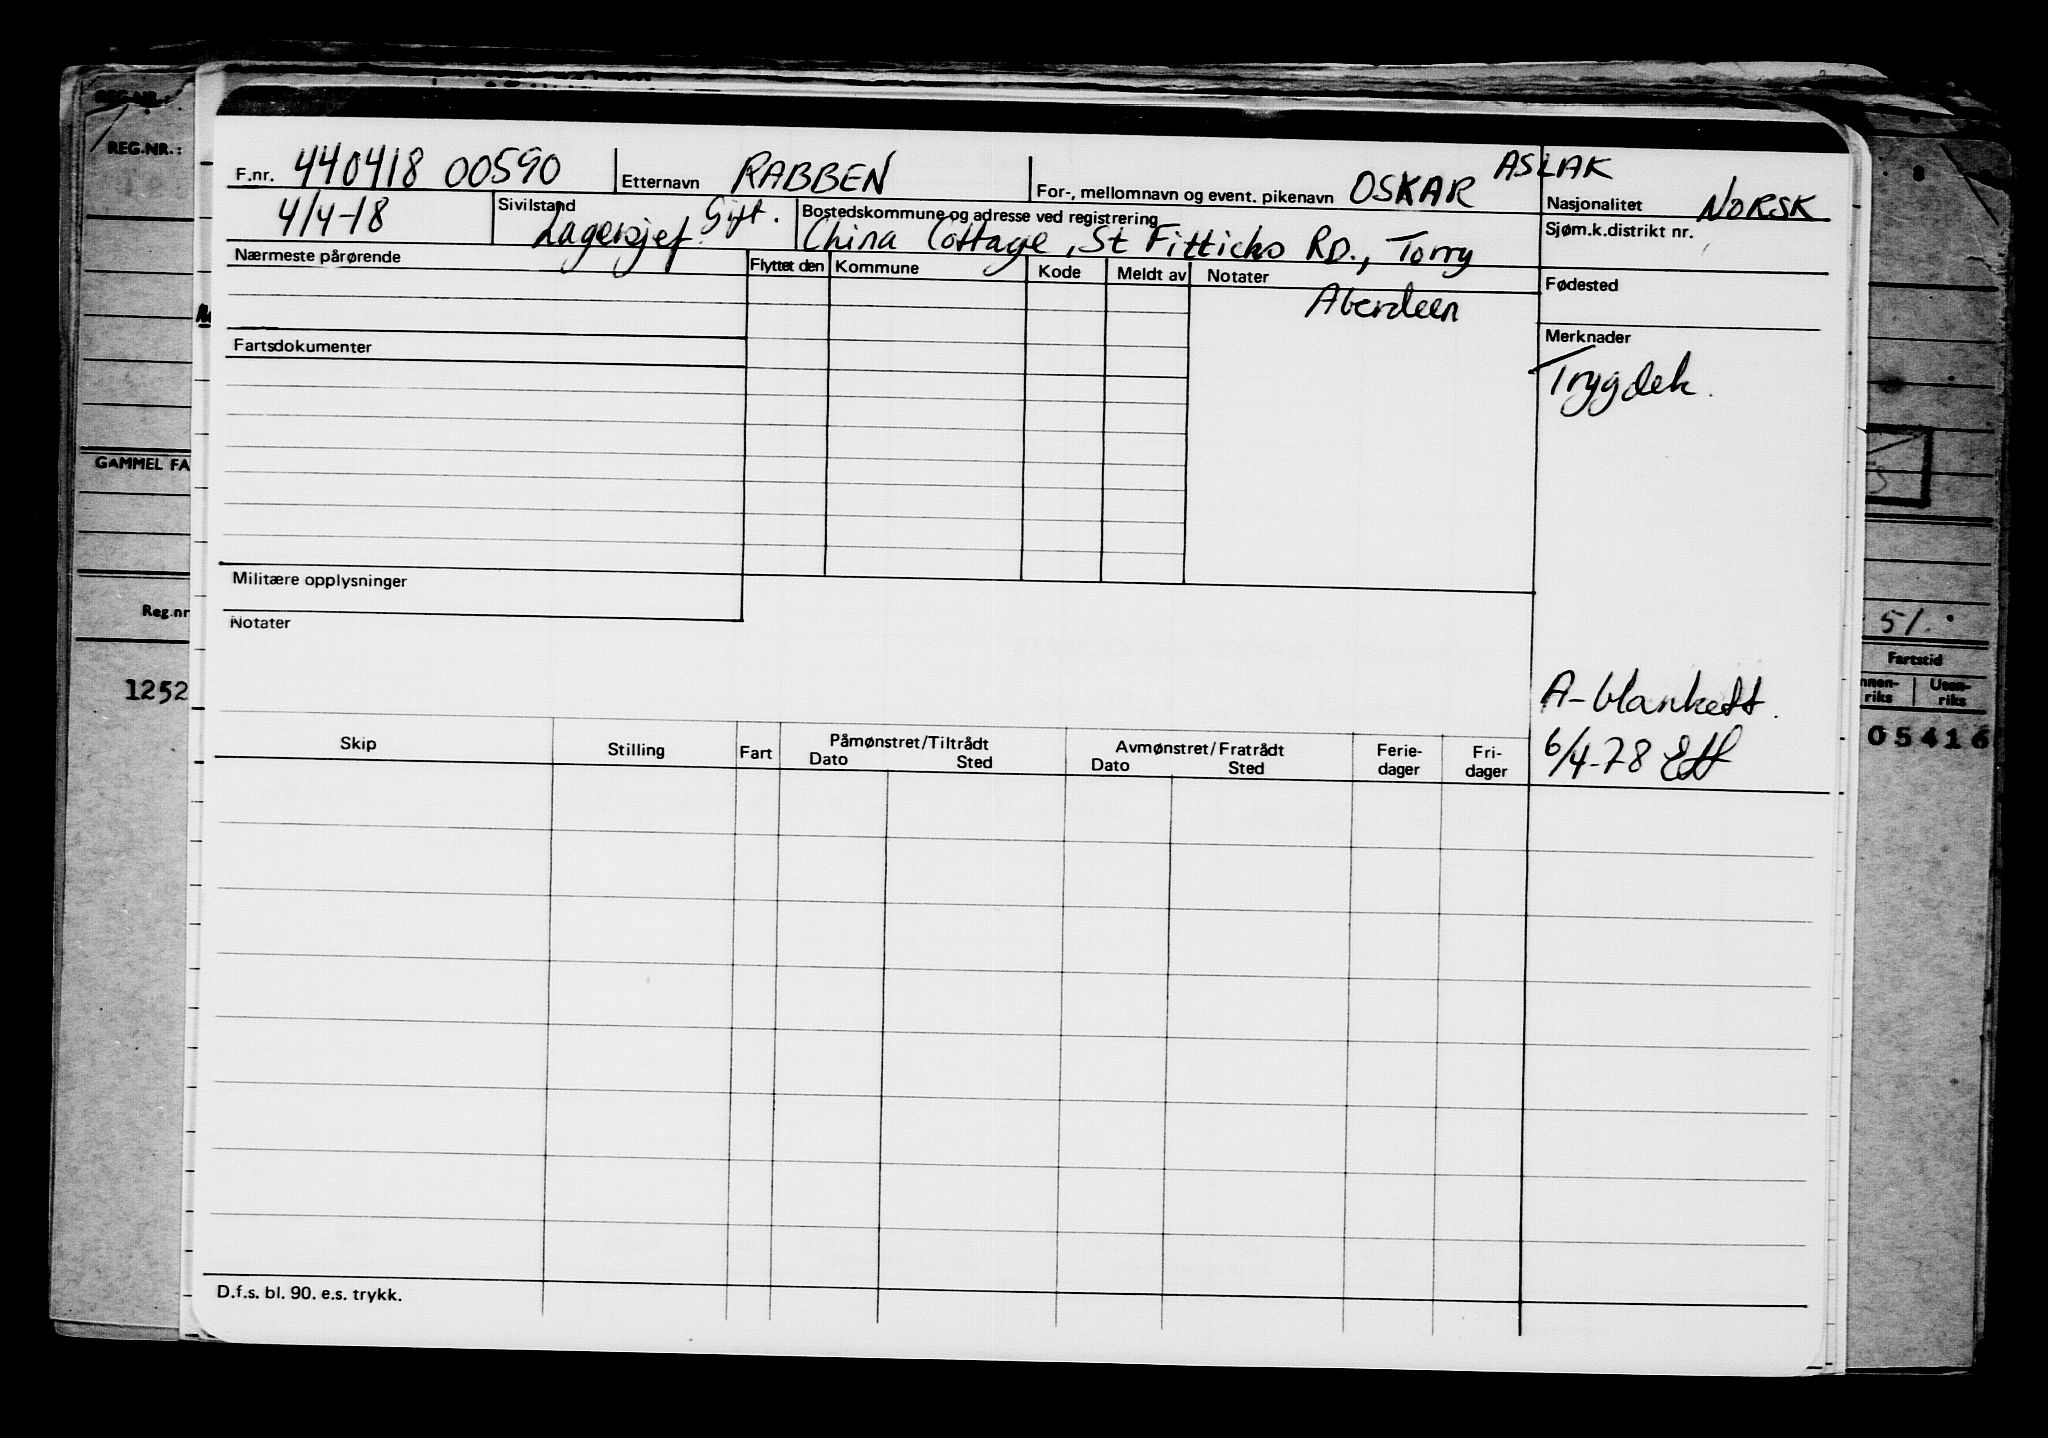 REG.NR.:
GAMMEL FA
Reg.nr
1252
F.nr. 440418 00590 Etternavn RABBEN For-, mellomnavn og event. pikenavn OSKAR ASLAK
Nasjonalitet NORSK
4/4-18 Sivilstand Gift. Lagersjef. Bostedskommune og adresse ved registrering
China Cottage, St Fitticks RD., Torry
Sjøm.k.distrikt nr.
Nærmeste pårørende Flyttet den Kommune Kode Meldt av Notater
Aberdeen
Fødested
Merknader
Fartsdokumenter
Trygdek.
Militære opplysninger
Notater
51.
Fartstid
Innen-riks Uten-riks
05416
A-blankett.
6/4-78
Skip Stilling Fart Påmønstret/Tiltrådt Avmønstret/Fratrådt Ferie- Fri-
Dato Sted Dato Sted dager dager
D.f.s. bl. 90. e.s. trykk.